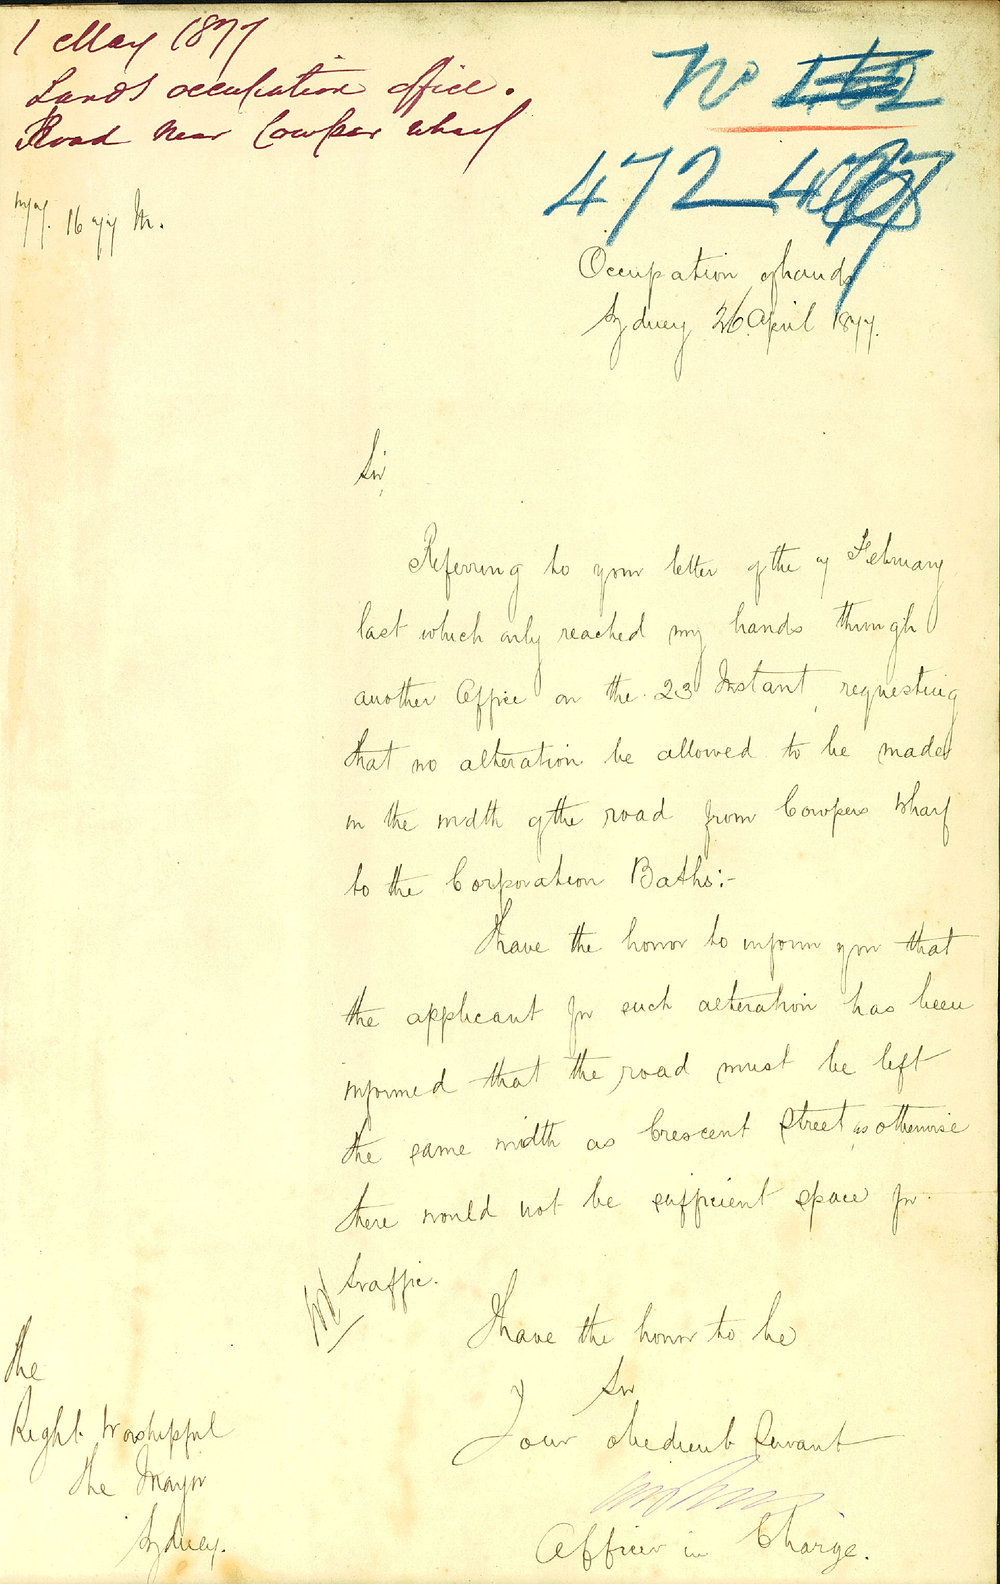 1 May 1877
Lands occupation office.
Road near Cowper wharf
No
472
Occupation of Lands
Sydney 26 April 1877.
Sir,
Referring to your letter of the 7 February
last which only reached my hands through
another Office on the 23 Instant, requesting
that no alteration be allowed to be made
in the width of the road from Cowpers Wharf
to the Corporation Baths:-
I have the honor to inform you that
the applicant for such alteration has been
informed that the road must be left
the same width as Crescent Street as otherwise
there would not be sufficient space for
traffic.
I have the honor to be
Sir
Your obedient Servant
Officer in Charge.
The
Right Worshipful
The Mayor
Sydney.